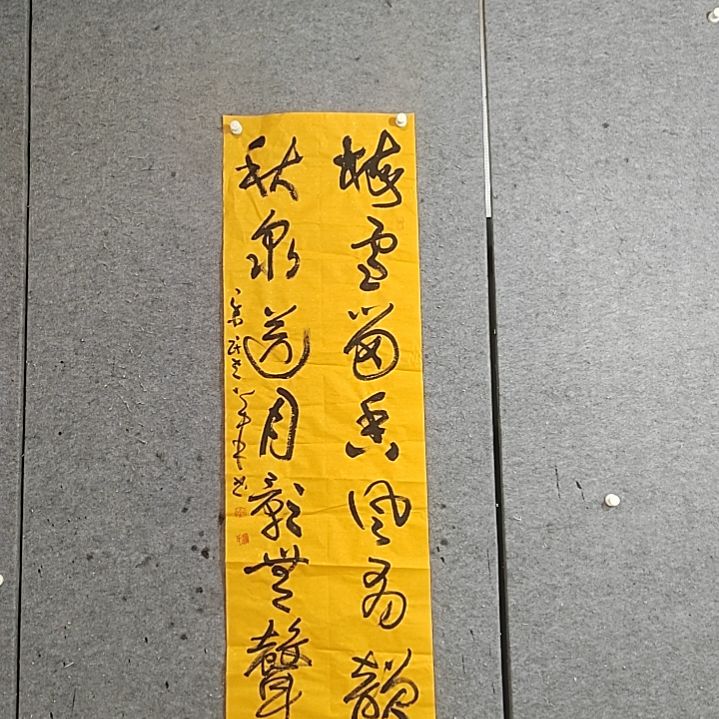 梅雪留香風有韻
秋泉邀月影無聲